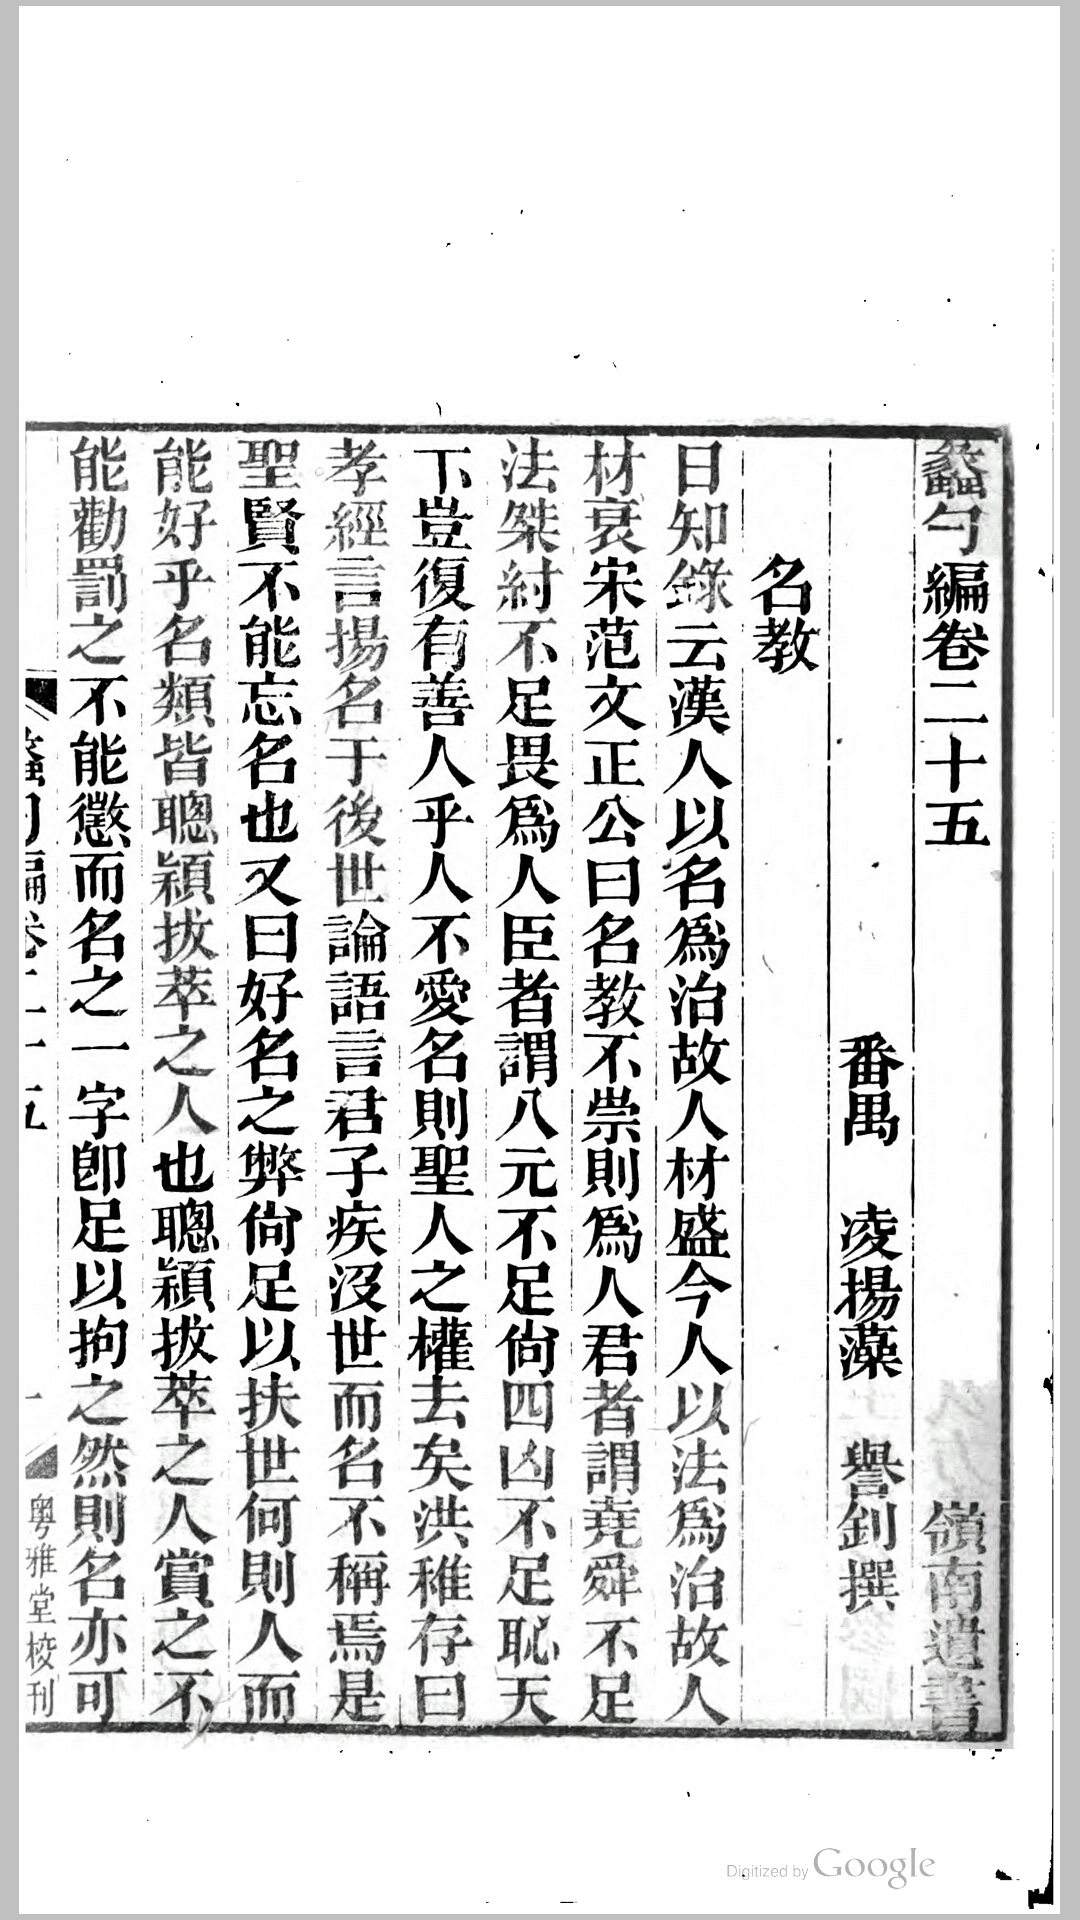 蠡勺編卷二十五 嶺南遺書
番禺 凌揚藻 譽釗撰
名教
日知錄云漢人以名爲治故人材盛今人以法爲治故人
材衰宋范文正公曰名教不崇則爲人君者謂堯舜不足
法桀紂不足畏爲人臣者謂八元不足尙四凶不足恥天
下豈復有善人乎人不愛名則聖人之權去矣洪稚存曰
孝經言揚名于後世論語言君子疾沒世而名不稱焉是
聖賢不能忘名也又曰好名之弊尙足以扶世何則人而
能好乎名類皆聰穎拔萃之人也聰穎拔萃之人賞之不
能勸罰之不能懲而名之一字卽足以拘之然則名亦可
蠡勺編卷二十五 一 粵雅堂校刊
Digitized by Google